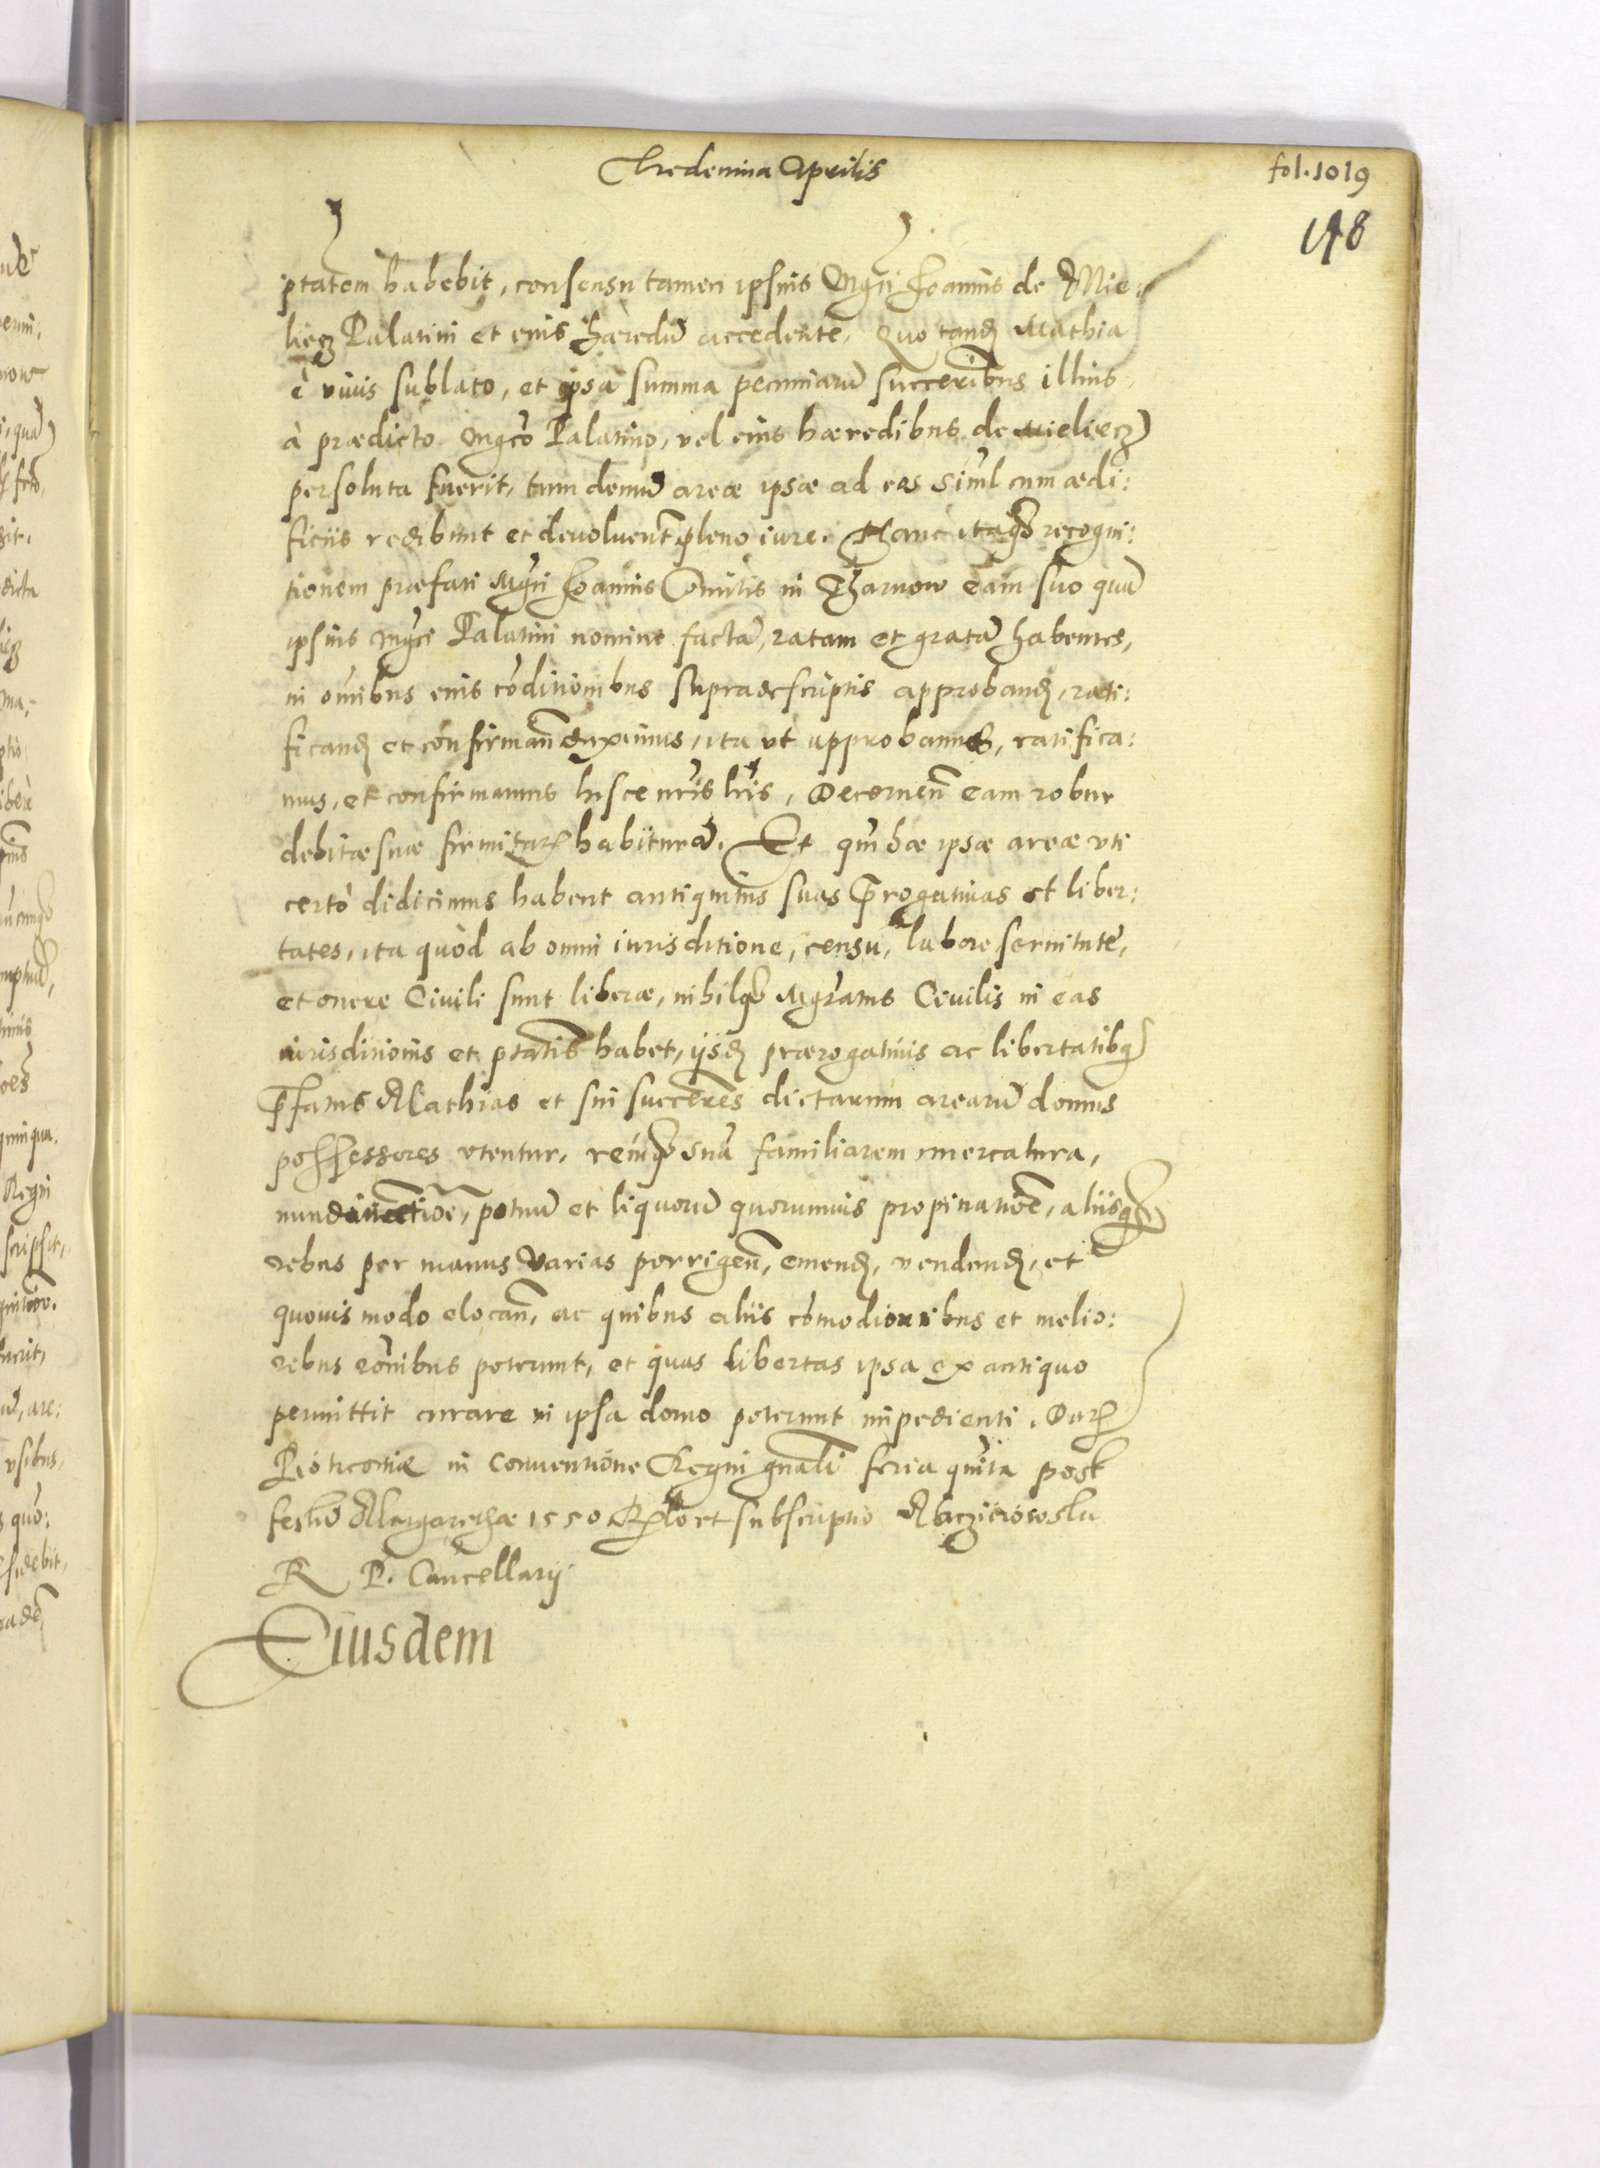 Tredecima Aprilis
fol. 1019
148
ptatem habebit, consensu tamen ipsius Mgci Joannis de Mie:
liecz Palatini et eius haeredũ accedente. Quo tandẽ Mathia
è viuis sublato, et ipsa summa pecuniarũ succesribus illius
à praedicto Mgco Palatino, vel eius haeredibus de Mieliecz
persoluta fuerit, tum demũ areae ipsae ad eos simul cum aedi:
ficiis redibunt et deuoluent pleno iure. Hanc itaq recogni:
tionem praefati Mgci Joannis Comitis in Tharnow eam suo quã
ipsius Mgci Palatini nomine factã, ratam et gratã habentes,
in omibus eius cõditionibus supradescriptis approband, rati:
ficand et confirmand duximus, ita vt approbamus, ratifica:
mus, et confirmamus hisce nris lris, Decernen eam robur
debitae suae firmitatis habiturã. Et qm hae ipsae areae vti
certò didicimus habent antiquitus suas prerogatiuas et liber:
tates, ita quòd ab omni iurisditione, censu, labore seruitute,
et onere Ciuili sunt liberae, nihilq Mgratus Ciuilis in eas
iurisditionis et ptatis habet, ijsd praerogatiuis ac libertatibq
prefatus Mathias et sui succesres dictarum arearũ domus
possessores vtentur, remq suã familiarem mercatura,
potuũ et liquorũ quorumuis propinatioe, aliisq
rebus per manus varias porrigen, emend, vendend, et
quouis modo elocan, ac quibus aliis cõmodioribus et melio:
rebus rõnibus poterunt, et quas libertas ipsa ex antiquo
permittit curare in ipsa domo poterunt impedienti. Datis
Piotrcouiae in Conuentione Regni gnali feria quinta post
festũ Margarethae 1550 Rlo et subscriptio
R P. Cancellarij
Eiusdem